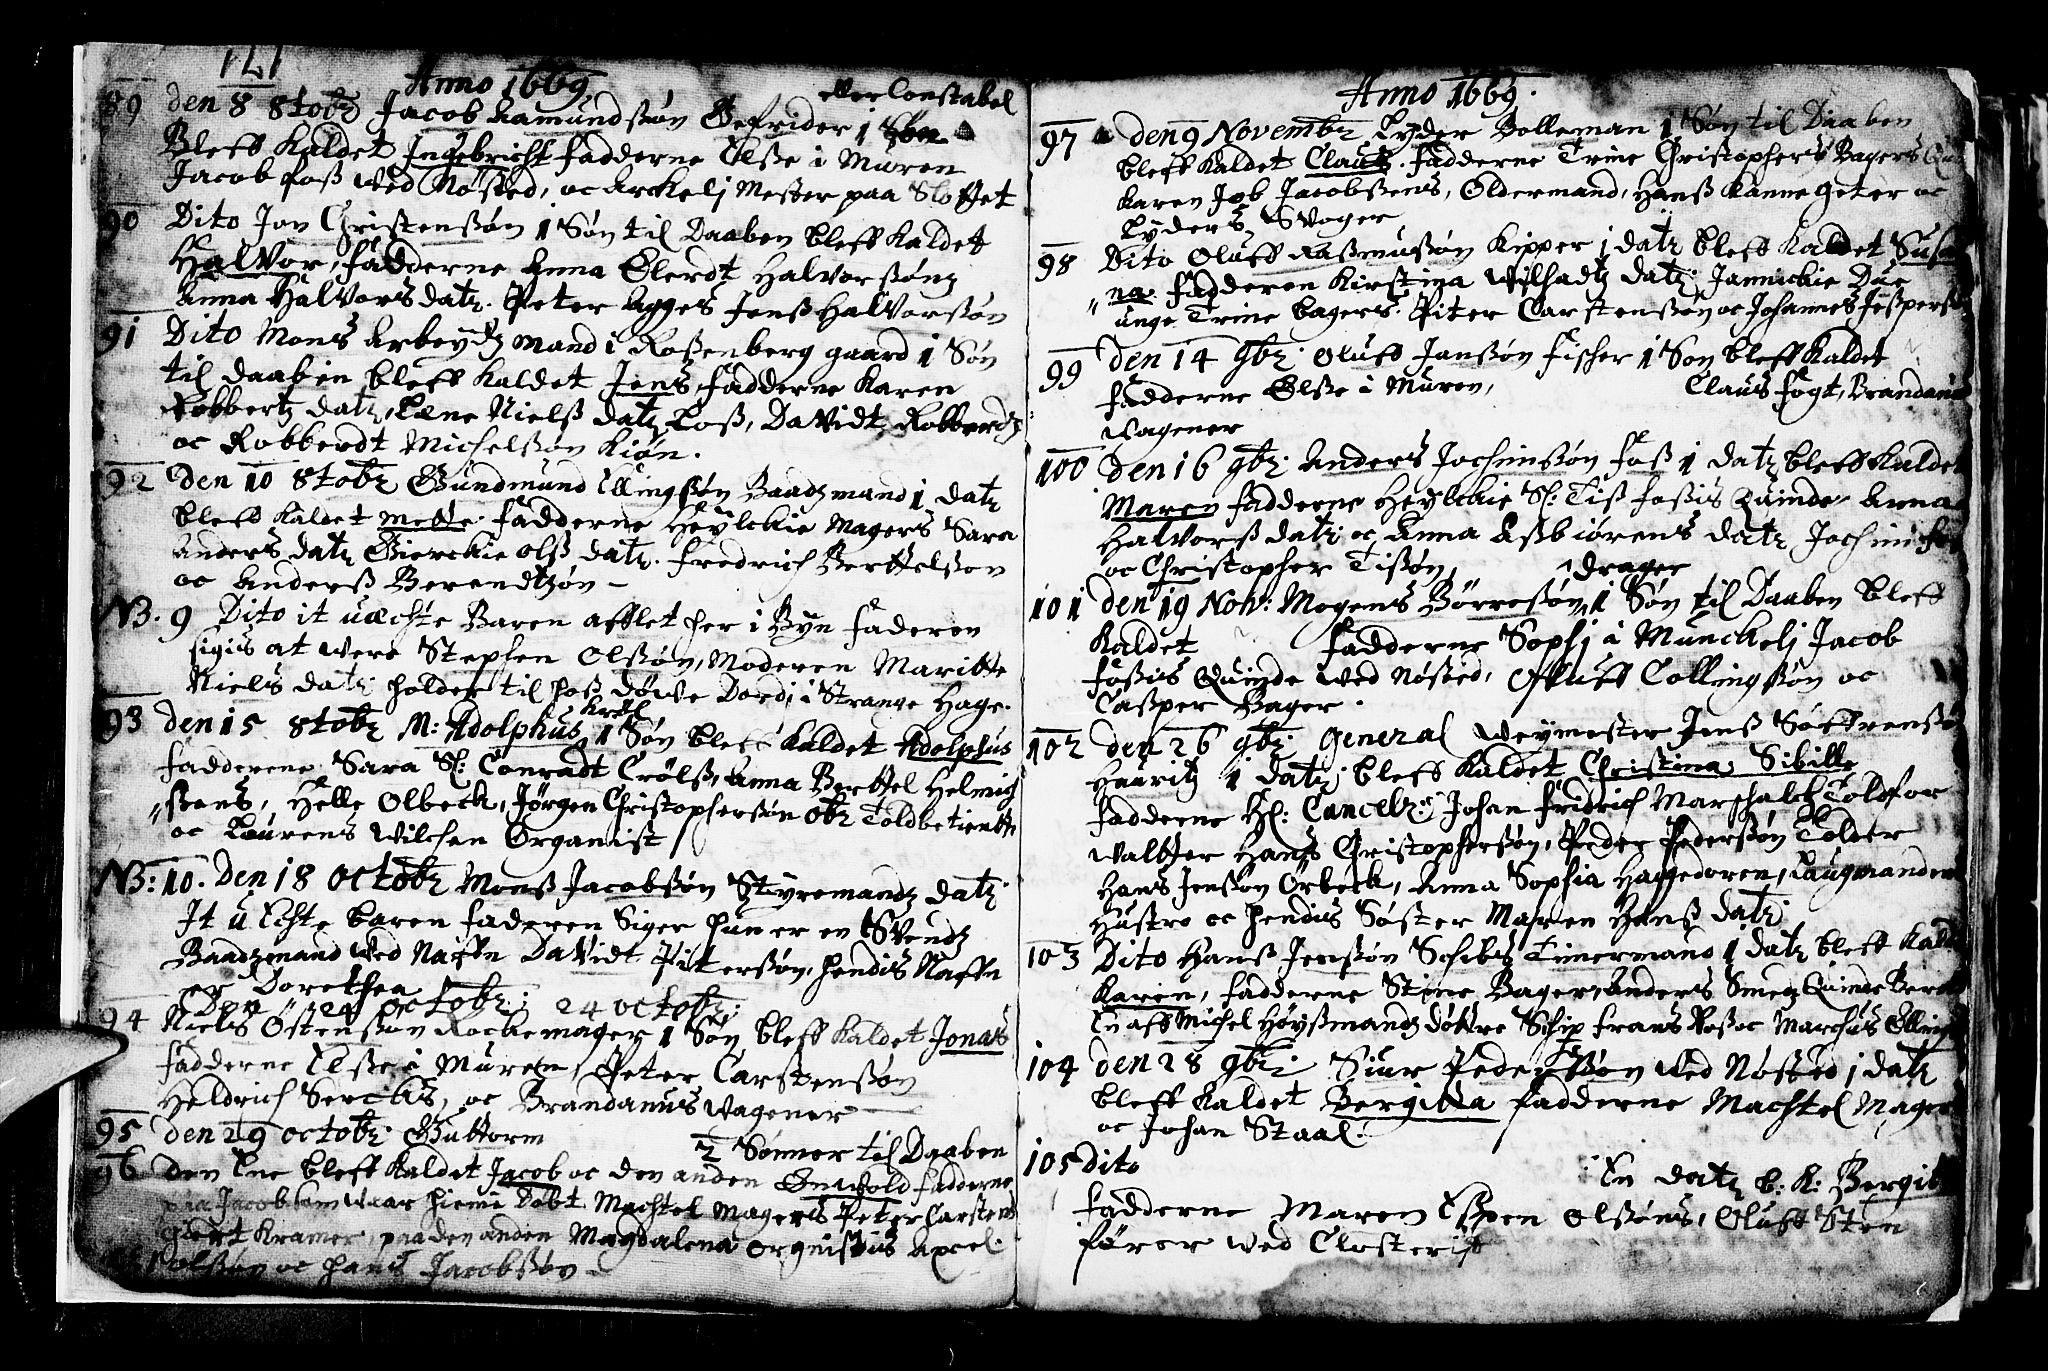 121
Anno 1669
eller Constabel
89 den 8 8tobr Jacob Aamundßøn Gefrider 1 Søn
Bleff Kaldet Ingebricht Fadderne Elße i Muren
Jacob Foß wed Nøsted, oc Arckelj Mester paa Slottet
90 Dito Jon Christenßøn 1 Søn til Daaben bleff Kaldet
Halvor, Fadderne Anna Elerdt Halvorßøns
Anna Halvors datr. Peter Agges Jenß Halvorßøn
91 Dito Mons Arbeydtz mand i Roßenberg gaard 1 Søn
til daaben bleff Kaldet Jens, Fadderne Karen
Robbertz datr, Lene Nielß datr Loß, Davidt Robberdtz
oc Robberdt Michelßøn Kiøn.
92 den 10 8tobr Gudmund Ellingßøn Baadzmand 1 datr
bleff Kaldet Mette. Fadderne Heylckie Magers Sara
Anders datr Gierckie Olß datr. Fredrich Berttelßøn
oc Anderß Berendtzøn –
NB. 9 Dito it uæchte Baren afflet her i Byn Faderen
sigis at were Stephen Olßøn, Moderen Maritte
Niels datr holder til hoß døwe Dordi i Strange Hage.
Krøll
93 den 15 8tobr M: Adolphus 1 Søn bleff Kaldet Adolphus
Fadderene Sara Sl: Conradt Crølß, Anna Berttel Helmich
" ßens, Helle Olbeck, Jørgen Christopherßøn Obr Toldbetientte
oc Laurens Wilchen Organist
NB: 10. Den 18 octobr Monß Jacobßøn Styremandz datr
It uEchte baren Faderen Siger hun er en Svendz
Baadzmand wed Naffn Davidt Pitterßøn, hendis Naffn
er Dorethea
Den 24 octobr; 24 octobr;
94 Niels Østenßøn Rockemager 1 Søn bleff Kaldet Jonas
Fadderne Elße i Muren, Peter Carstenßøn
Heldrich Sercks, oc Brandanus Wagener
95 den 29 octobr Guttorm 2 Sønner til Daaben
96 Den Ene bleff Kaldet Jacob oc den anden Enwold Fadderne
paa Jacob som waar hieme Døbt Machtel Magers Peter Carstens
Giert Kramer, paa den anden Magdalena Orgnistis Axcel
olßøn oc Hans Jacobßøn –
Anno 1669.
97 den 9 Novembr Lyder Bolleman 1 Søn til Daaben
bleff Kaldet Claus. Fadderne Trine Christophers Bagers
Karen Job Jacobßens, Oldermand, Hanß Kannegeter oc
Lyders Swoger
98 Dito Oluff Raßmusøn Kipper 1 datr bleff Kaldet Susan
" na. Fadderen Kirstina Wilhadtz datr. Jannickie Due
unge Trine bagers. Piter Carstenßøn oc Johannes Jesperßøn
99 den 14 9br. Oluff Janßøn Fischer 1 Søn bleff Kaldet
Fadderne Elße i Muren, Claus Fogt, Brandanus
Wagener
100 den 16 9br. Anders Jochimßøn Foß 1 datr bleff Kaldet
Maren Fadderne Heylckie Sl: Tiß Foßis Quinde, Anna
Halvorß datr oc Anna Aßbiørens datr Jochim Foß
oc Christopher Tißøn,
drager
101 den 19 Nov: Mogens Børreßøn 1 Søn til Daaben bleff
Kaldet Fadderne Sophj i Munckelj Jacob
Foßis Quinde wed Nøsted, Oluff Tollingßøn oc
Caßper Bager.
102 den 26 9br. General Weymester Jenß Søffrenßøn
Hauritz 1 datr. bleff Kaldet Christina Sibille
Fadderne Hl: Cancelr: Johan Fridrich Marschalck Toldfor
walter Hans Christopherßøn, Peder Pederßøn Tolder
Hans Jenßøn Ørbeck, Anna Sophia Haggedoren, Laugmandens
Hustro oc hendis Søster Maren Hanß datr.
103 Dito Hanß Jenßøn Schibs Timermand 1 datr bleff Kaldet
Karen, Fadderne Stine Bagers, Anders Smetz Quinde
En aff Michel Høyßmandz døttre Schip Frans Roß oc Marchus Elling
104 den 28 9br. Siur Pederßøn wed Nøsted 1 datr
bleff Kaldet Bergitta Fadderne Machtel Mager
oc Johan Staal.
105 Dito En datr b: K: Bergit
Fadderne Maren Eßpen Olßøns, Oluff Sten
fører wed Closteret